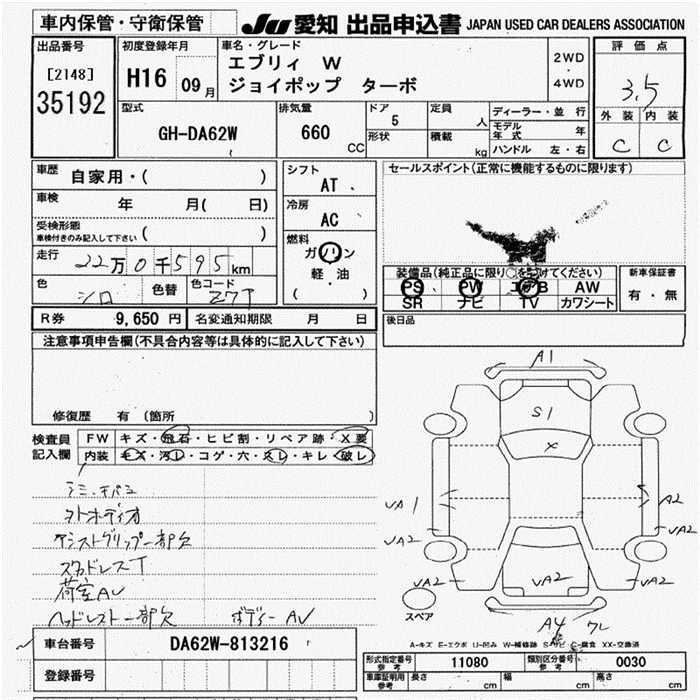 車内保管・守衛保管
JU 愛知 出品申込書 JAPAN USED CAR DEALERS ASSOCIATION
出品番号
[2148]
35192
初度登録年月
H16 09月
車名・グレード
エブリィ W
ジョイポップ ターボ
2WD
・
4WD
評価点
3.5
外装 内装
C C
型式
GH-DA62W
排気量
660 CC
ドア
5
形状
定員
人
積載
kg
ディーラー・並行
モデル年式 年
ハンドル 左・右
車歴 自家用・( )
車検 年 月( 日)
受検形態
車検付きのみ記入して下さい ( )
走行 22万0千595km
色 シロ
色替
色コード
Z7T
シフト
AT
冷房
AC
燃料
ガソリン
軽・油
( )
セールスポイント(正常に機能するものに限ります)
装備品(純正品に限り○を付けてください)
PS PW エアB AW
SR ナビ TV カワシート
新車保証書
有・無
R券 9,650円
名変通知期限 月 日
後日品
注意事項申告欄(不具合内容等は具体的に記入して下さい)
修復歴 有 (箇所 )
検査員記入欄
FW キズ・飛石・ヒビ割・リペア跡・X要
内装 キズ・汚レ・コゲ・穴・スレ・キレ・破レ
アシストグリップ一部欠
荷室AU
ヘッドレスト一部欠 ボディーAU
A1
S1
X
UA1
A2
UA2
UA2
UA2
UA2
UA2
A4 ワレ
スペア
A-キズ E-エクボ U-凹み W-補修跡 S-サビ C-腐食 XX-交換済
車台番号 DA62W-813216
登録番号
形式指定番号
参考
11080
類別区分番号
参考
0030
車庫証明用
参考
長さ cm 幅 cm 高さ cm